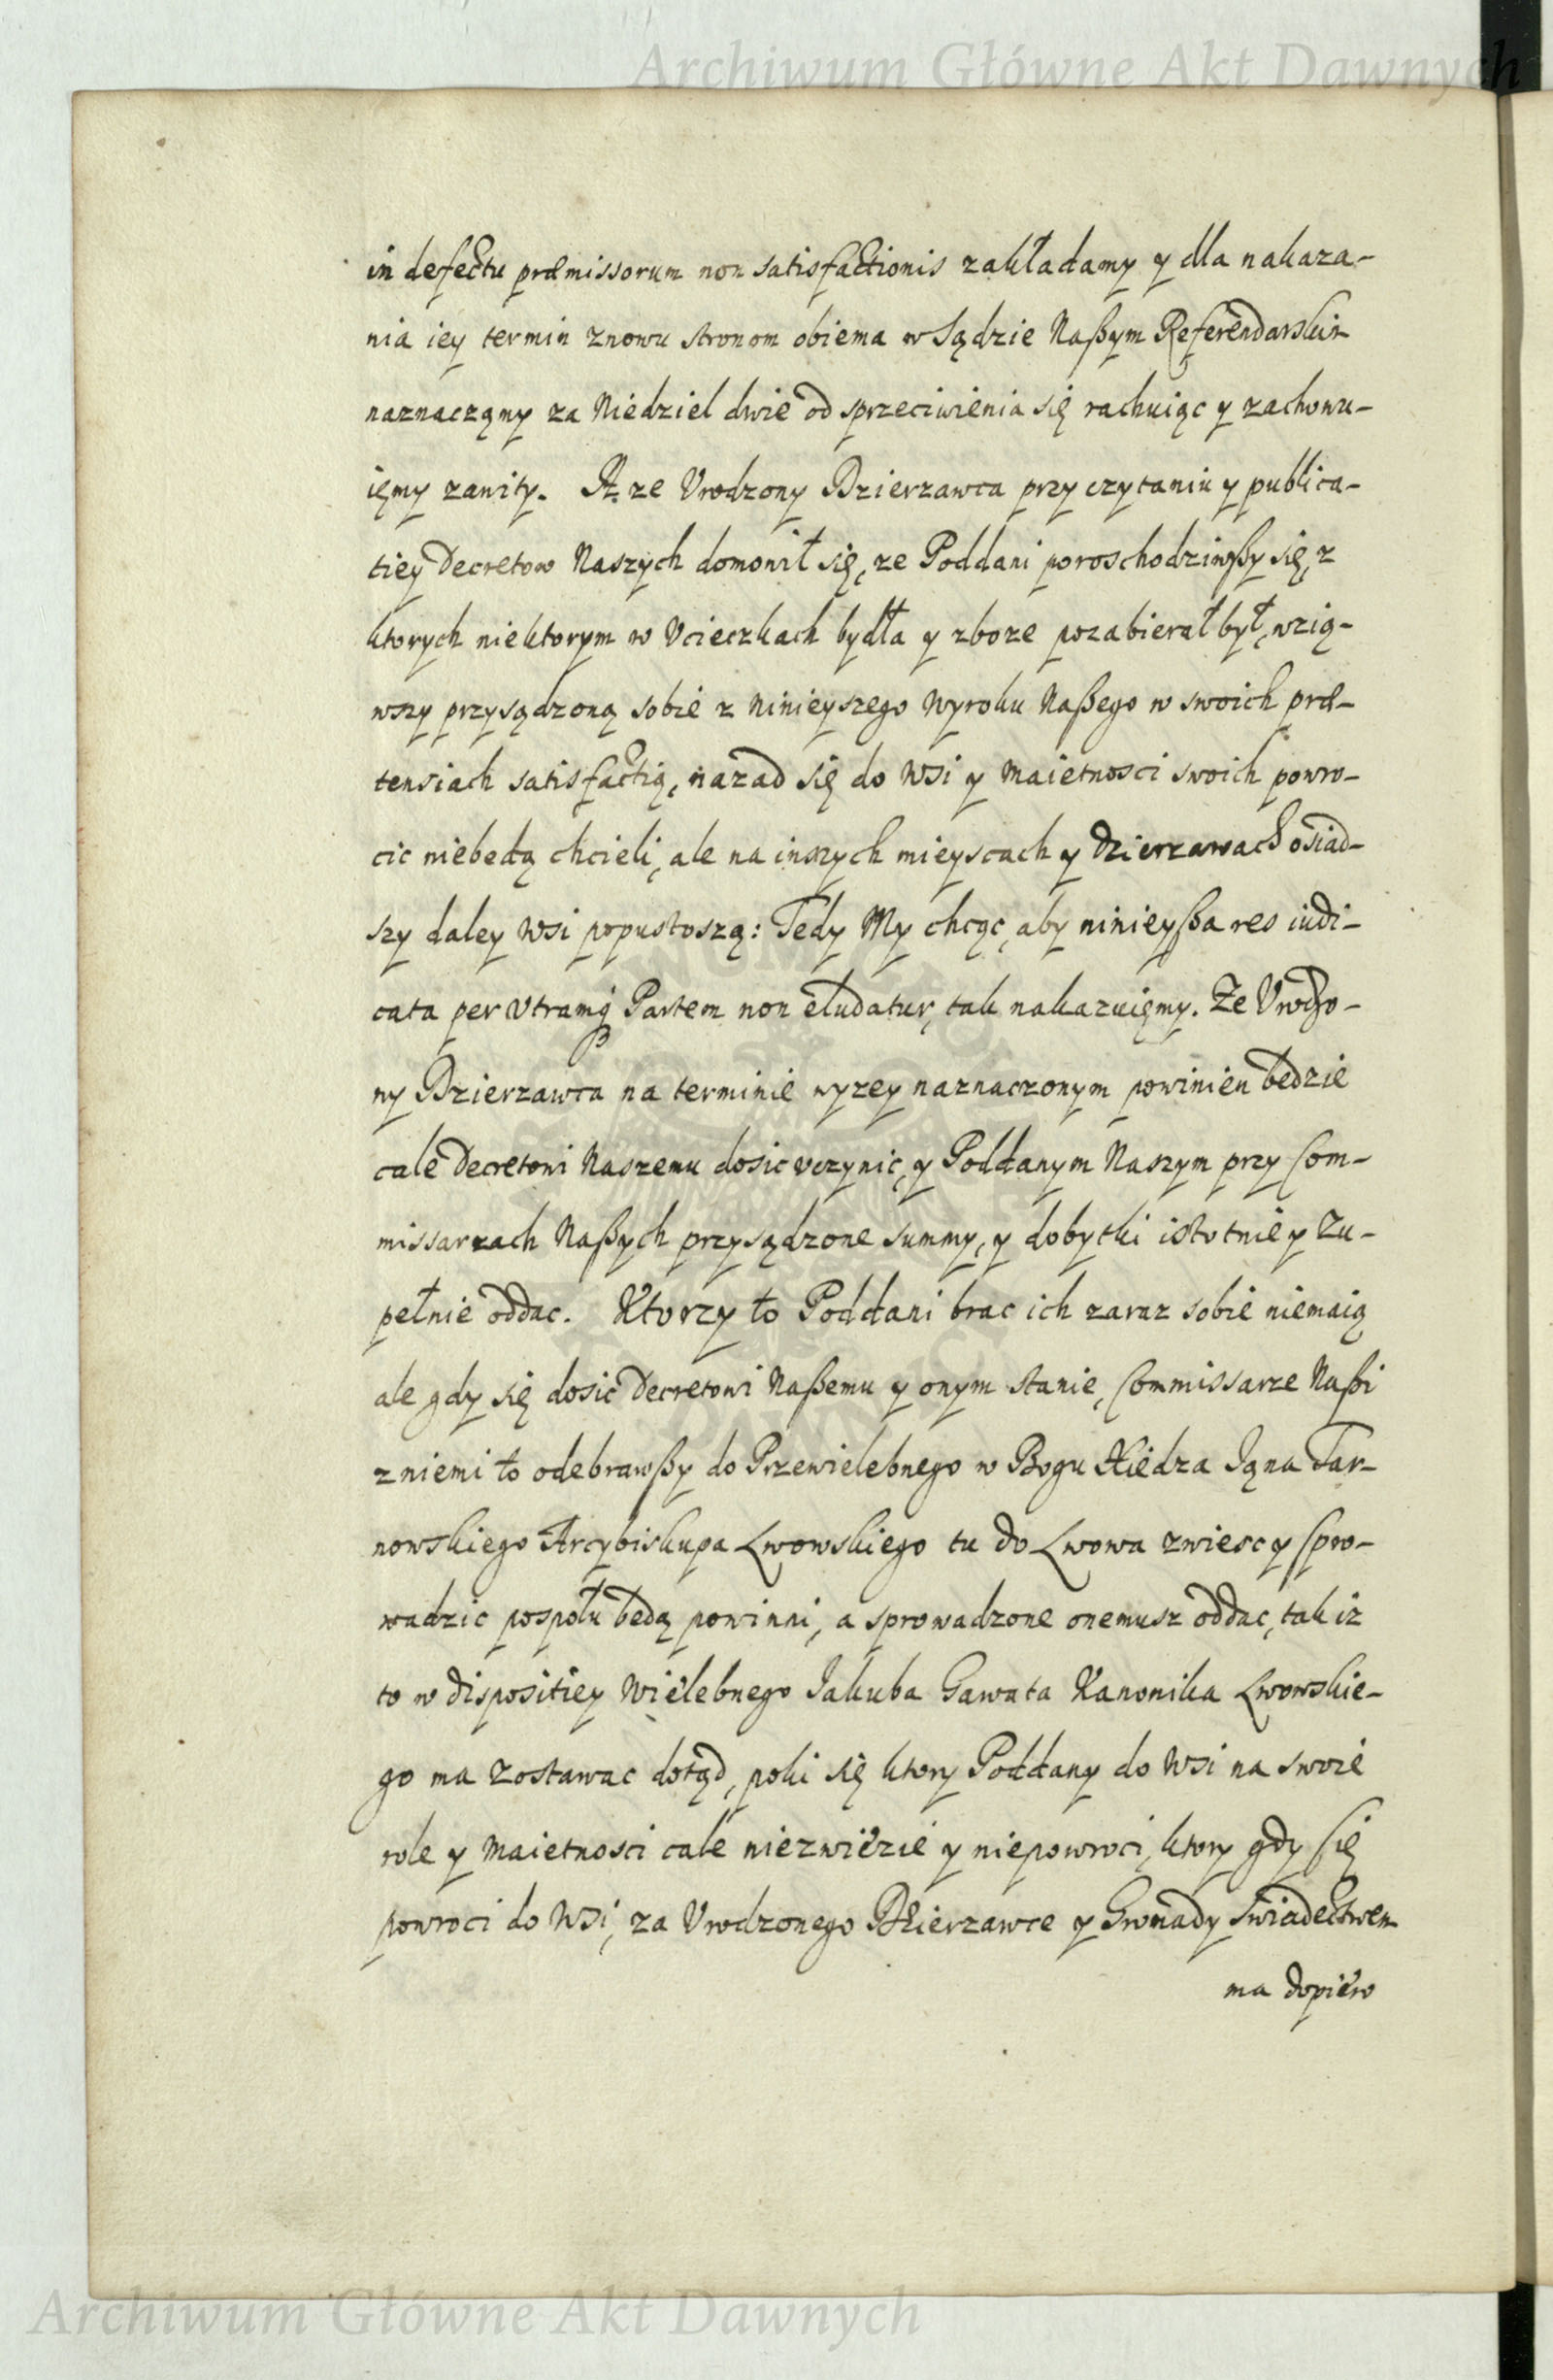 Archiwum Główne Akt Dawnych
in defectu præmissorum non satisfactionis zakładamy y dla nakaza-
nia iey termin znowu stronom obiema w Sądzie Naßym Referendarskim
naznaczamy za Niedziel dwie od sprzeciwienia się rachuiąc y zachowu-
ięmy zawity. A ze Vrodzony Dzierzawca przy czytaniu y publica-
tiey Decretow Naszych domowił się, ze Poddani poroschodziwßy się, z
ktorych niektorym w Vcieczkach bydła y zboze pozabierał był, wzią-
wszy przysądzoną sobie z Ninieyszego Wyroku Naßego w swoich præ-
tensiach satisfactią, nazad się do Wsi y Maietnosci swoich powro-
cic niebedą chcieli, ale na inszych mieyscach y dzierzawach osiad-
szy daley Wsi popustoszą: Tedy My chcąc, aby ninieyßa res iudi-
cata per Vtramq Partem non eludatur, tak nakazuięmy. Ze Vrodzo-
ny Dzierzawca na terminie wyzey naznaczonym powinien bedzie
cale Decretowi Naszemu dosic vczynic, y Poddanym Naszym przy Com-
missarzach Naßych przysądzone summy, y dobytki istotnie y zu-
pełnie oddac. Ktorzy to Poddani brac ich zaraz sobie niemaią
ale gdy się dosic Decretowi Naßemu y onym stanie, Commissarze Naßi
z niemi to odebrawßy do Przewielebnego w Bogu Xiedza Jąna Tar-
nowskiego Arcybiskupa Lwowskiego tu do Lwowa zwiesc y spro-
wadzic pospołu bedą powinni, a sprowadzone onemusz oddac, tak iz
to w dispositiey Wielebnego Jakuba Gawata Kanonika Lwowskie-
go ma zostawac dotąd, poki się ktory Poddany do Wsi na swoie
role y Maietnosci cale niezwiezie y niepowroci, ktory gdy się
powroci do Wsi, za Vrodzonego Dzierzawce y Gromady swiadectwem
ma dopiero
Archiwum Główne Akt Dawnych